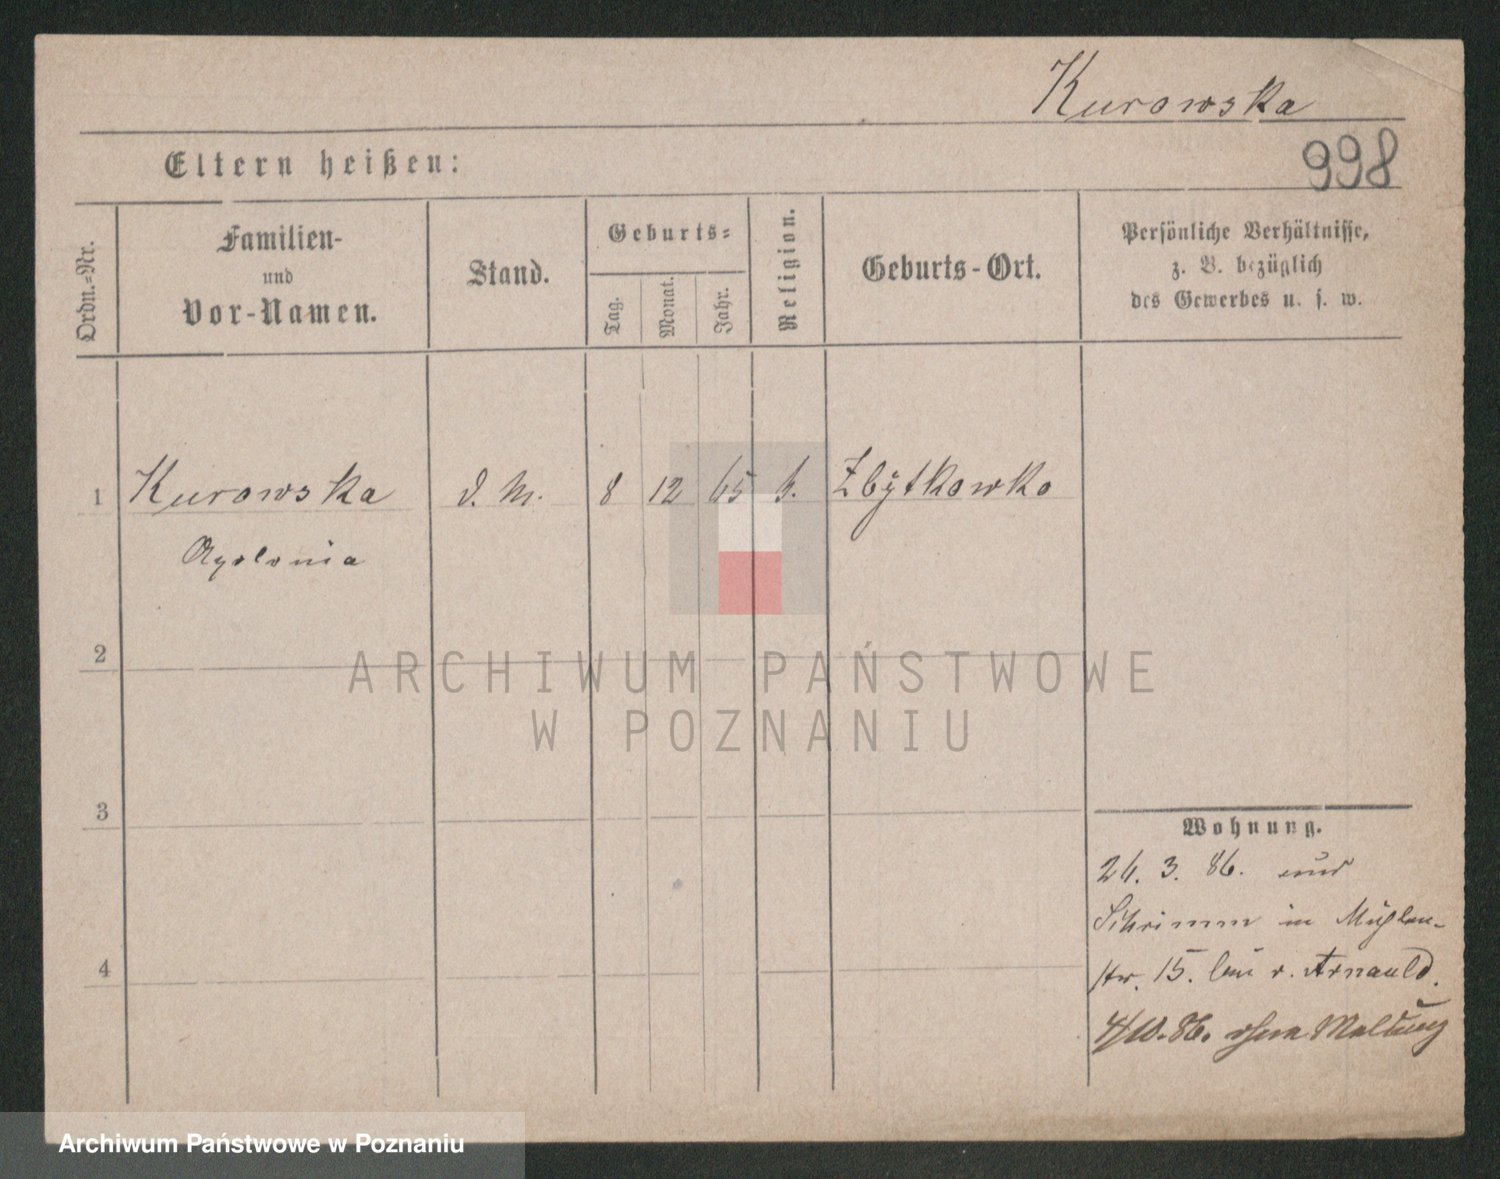 Kurowska
998
Eltern heißen:
Ordn.-Nr.
Familien-
und
Vor-Namen.
Stand.
Geburts-
Tag.
Monat.
Jahr.
Religion.
Geburts-Ort.
Persönliche Verhältnisse,
z. B. bezüglich
des Gewerbes u. s. w.
1 Kurowska d. M. 8 12 65 k. Zbytkowko
Apolonia
2
ARCHIWUM PAŃSTWOWE
W POZNANIU
3
4
Wohnung.
26. 3. 86. aus
Schrimm in Mühlen-
str. 15. bei v. Arnauld.
4/10.86. ohne Meldung
Archiwum Państwowe w Poznaniu